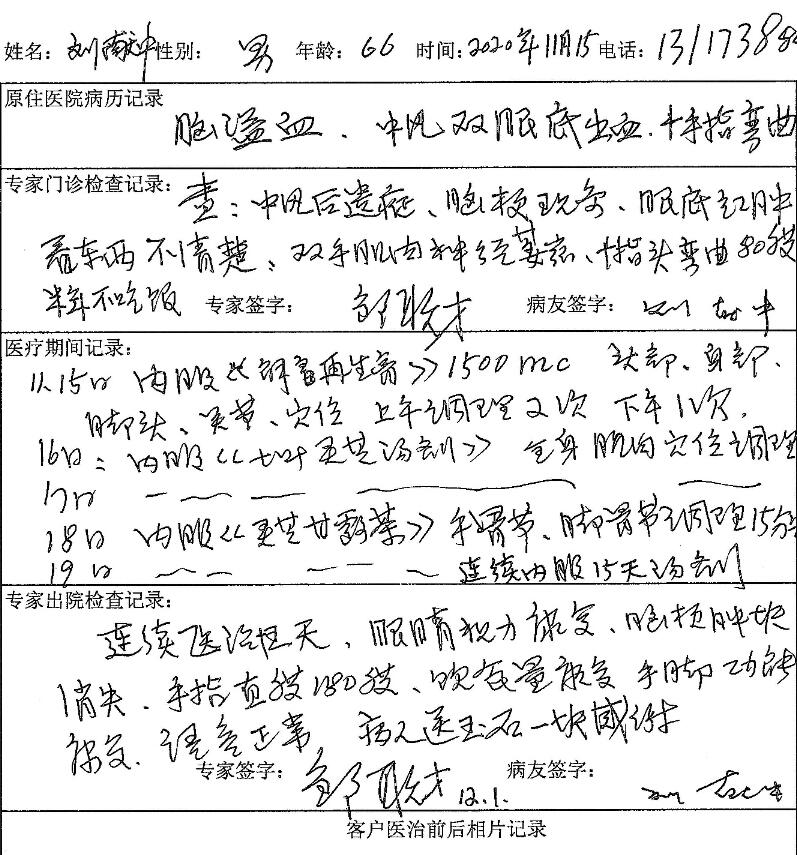 姓名：刘 中 性别：男 年龄：66 时间：2020年11月15 电话：13117388
原住医院病历记录
脑溢血、中风双眼底出血、十手指弯曲
专家门诊检查记录：
查：中风后遗症、脑梗 、眼底红肿
看东西不清楚、双手肌肉神经萎缩、十指头弯曲80
不吃饭 专家签字： 病友签字：刘 中
医疗期间记录：
11.15日 内服《 再生膏》1500mc 头部、身部、
脚头、关节、穴位 上午调理2次 下午1次，
16日：内服《七叶灵芝汤剂》 全身肌肉穴位调理
17日
18日 内服《灵芝甘 茶》手骨节、脚骨节调理15分
19日 连续内服15天汤剂
专家出院检查记录：
连续医治 天、眼睛视力恢复、脑梗肿块
消失、手指直 180 、 饭量恢复 手脚功能
恢复、语言正常 病人送玉石一块感谢
专家签字： 12.1. 病友签字：刘 中
客户医治前后相片记录